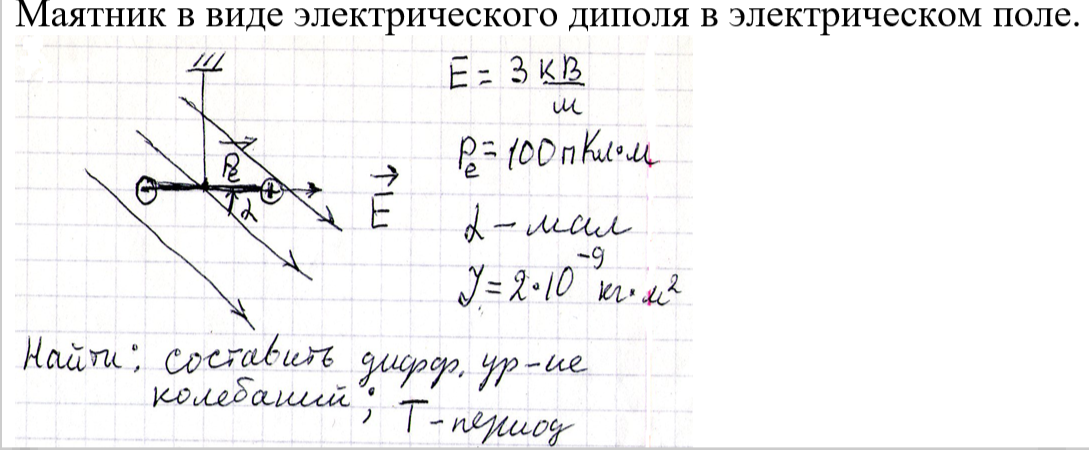 Маятник в виде электрического диполя в электрическом поле.
E = 3 кВ/м
Pe = 100 пКл·м
Pe
α
E
α – мал
J = 2·10⁻⁹ кг·м²
Найти: составить дифф. ур-ие
колебаний; T – период